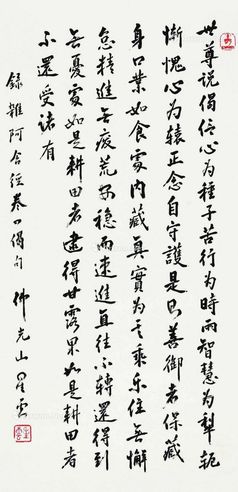 世尊說偈信心為種子苦行為時雨智慧為犁軛
慚愧心為轅正念自守護是則善御者保藏
身口業如食處內藏真實為其乘樂住無懈
怠精進無廢荒安穩而速進直往不轉還得到
無憂處如是耕田者逮得甘露果如是耕田者
不還受諸有
錄雜阿含經卷四偈句 佛光山星雲